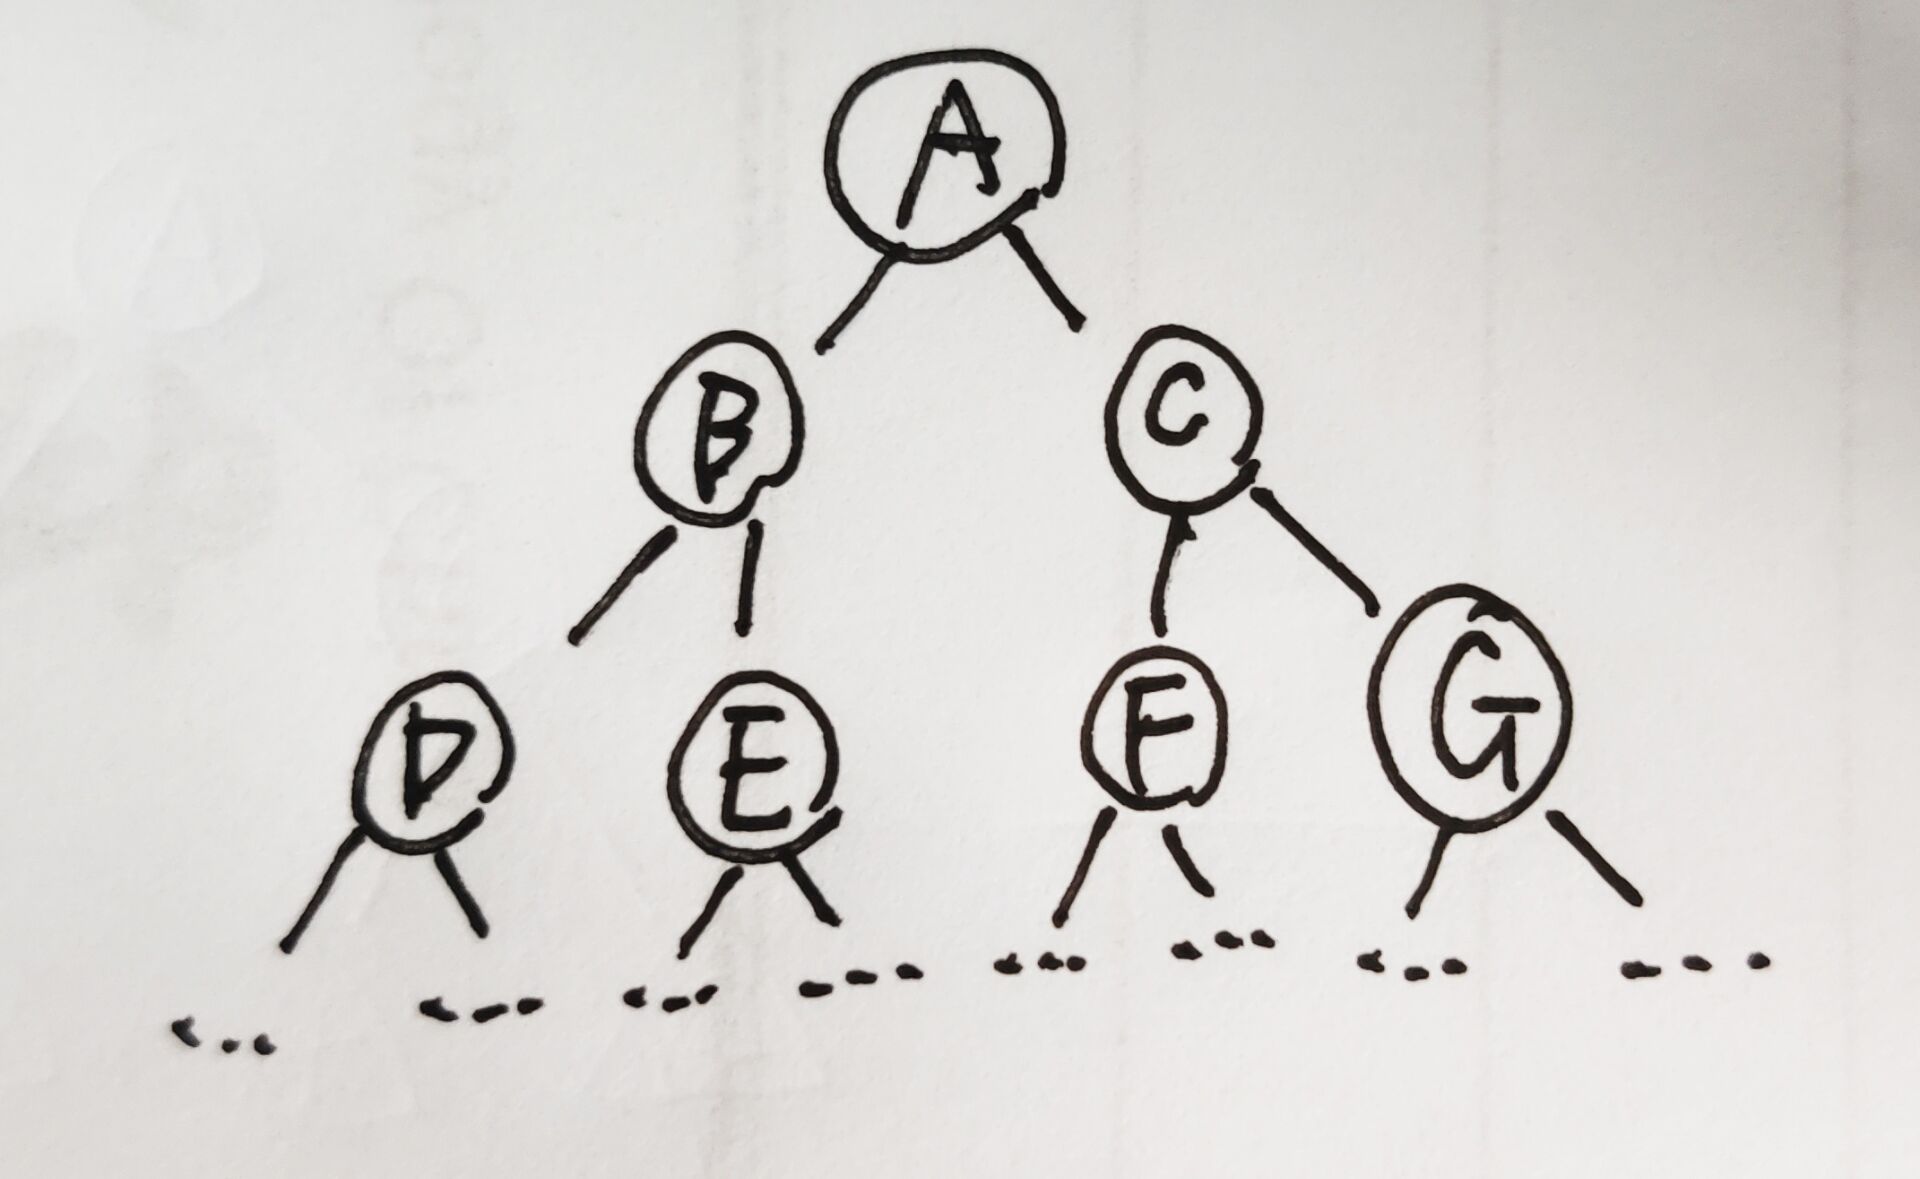 A
B C
D E F G
... ... ... ... ... ... ... ...